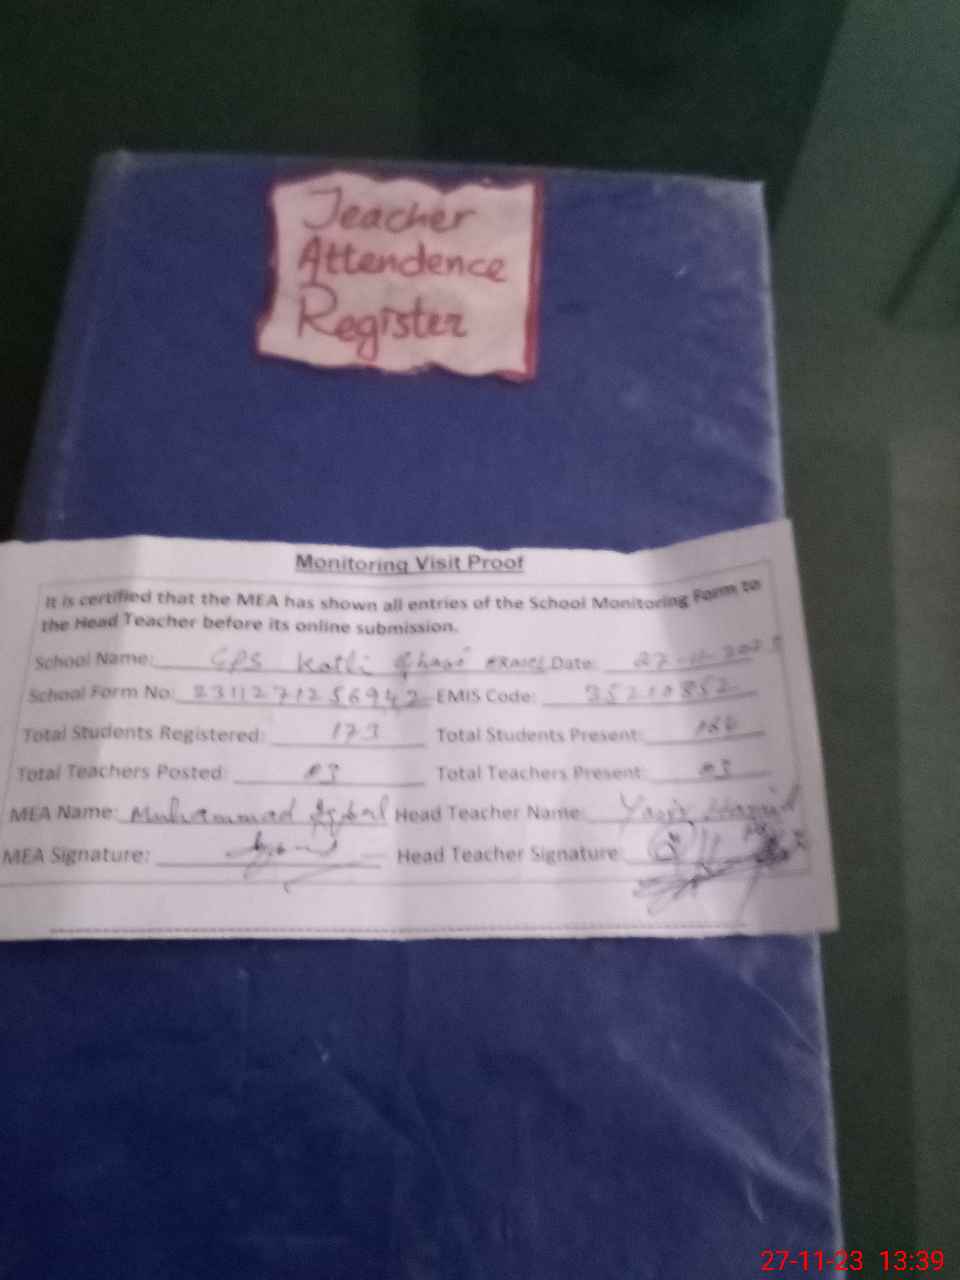 Teacher
Attendence
Register
Monitoring Visit Proof
It is certified that the MEA has shown all entries of the School Monitoring Form to
the Head Teacher before its online submission.
School Name: GPS Kotli Date: 27-11-2023
School Form No: 2311271256942 EMIS Code: 35210852
Total Students Registered: 173 Total Students Present:
Total Teachers Posted: 03 Total Teachers Present: 03
MEA Name: Muhammad Iqbal Head Teacher Name: Yasir
MEA Signature: Head Teacher Signature:
27-11-23 13:39